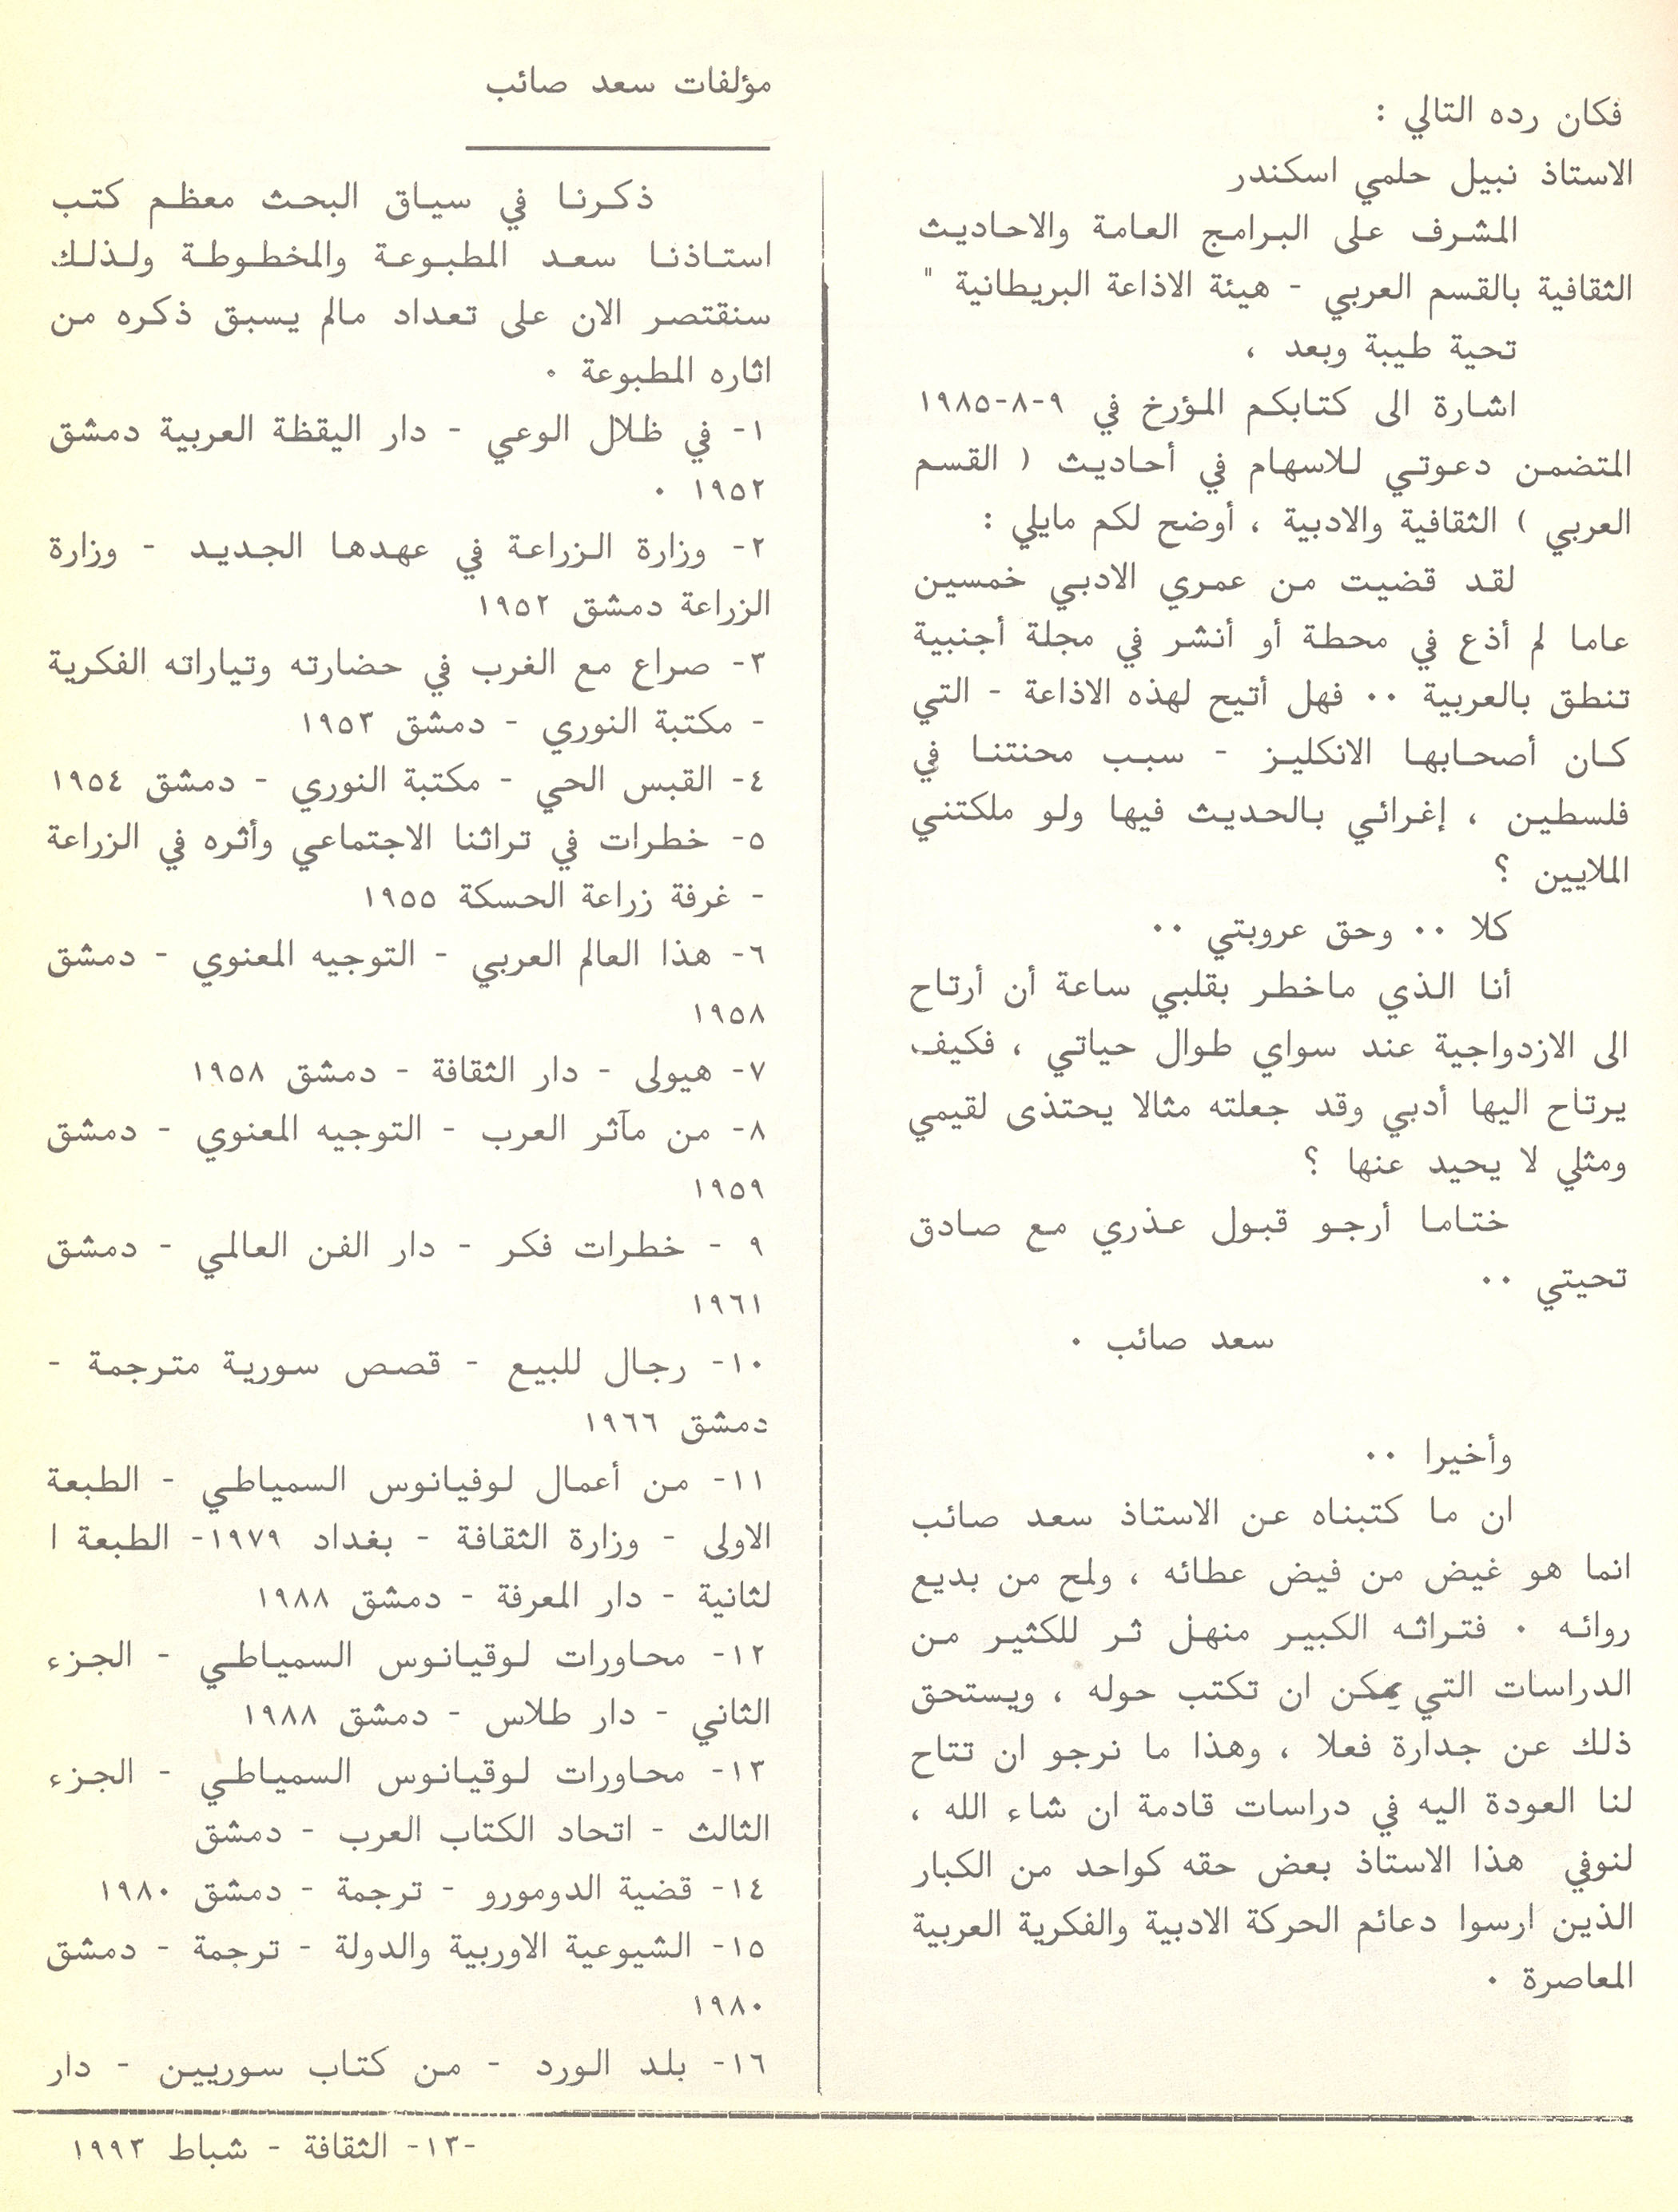 فكان رده التالي :
الاستاذ نبيل حلمي اسكندر
المشرف على البرامج العامة والاحاديث
الثقافية بالقسم العربي - هيئة الاذاعة البريطانية "
تحية طيبة وبعد ،
اشارة الى كتابكم المؤرخ في ٩-٨-١٩٨٥
المتضمن دعوتي للاسهام في أحاديث ( القسم
العربي ) الثقافية والادبية ، أوضح لكم مايلي :
لقد قضيت من عمري الادبي خمسين
عاما لم أذع في محطة أو أنشر في مجلة أجنبية
تنطق بالعربية ٠٠ فهل أتيح لهذه الاذاعة - التي
كان أصحابها الانكليز - سبب محنتنا في
فلسطين ، إغرائي بالحديث فيها ولو ملكتني
الملايين ؟
كلا ٠٠ وحق عروبتي ٠٠
أنا الذي ماخطر بقلبي ساعة أن أرتاح
الى الازدواجية عند سواي طوال حياتي ، فكيف
يرتاح اليها أدبي وقد جعلته مثالا يحتذى لقيمي
ومثلي لا يحيد عنها ؟
ختاما أرجو قبول عذري مع صادق
تحيتي ٠٠
سعد صائب ٠
وأخيرا ٠٠
ان ما كتبناه عن الاستاذ سعد صائب
انما هو غيض من فيض عطائه ، ولمح من بديع
روائه ٠ فتراثه الكبير منهل ثر للكثير من
الدراسات التي يمكن ان تكتب حوله ، ويستحق
ذلك عن جدارة فعلا ، وهذا ما نرجو ان تتاح
لنا العودة اليه في دراسات قادمة ان شاء الله ،
لنوفي هذا الاستاذ بعض حقه كواحد من الكبار
الذين ارسوا دعائم الحركة الادبية والفكرية العربية
المعاصرة ٠
مؤلفات سعد صائب
ذكرنا في سياق البحث معظم كتب
استاذنا سعد المطبوعة والمخطوطة ولذلك
سنقتصر الان على تعداد مالم يسبق ذكره من
اثاره المطبوعة ٠
١- في ظلال الوعي - دار اليقظة العربية دمشق
١٩٥٢ ٠
٢- وزارة الزراعة في عهدها الجديد - وزارة
الزراعة دمشق ١٩٥٢
٣- صراع مع الغرب في حضارته وتياراته الفكرية
- مكتبة النوري - دمشق ١٩٥٣
٤- القبس الحي - مكتبة النوري - دمشق ١٩٥٤
٥- خطرات في تراثنا الاجتماعي وأثره في الزراعة
- غرفة زراعة الحسكة ١٩٥٥
٦- هذا العالم العربي - التوجيه المعنوي - دمشق
١٩٥٨
٧- هيولى - دار الثقافة - دمشق ١٩٥٨
٨- من مآثر العرب - التوجيه المعنوي - دمشق
١٩٥٩
٩ - خطرات فكر - دار الفن العالمي - دمشق
١٩٦١
١٠- رجال للبيع - قصص سورية مترجمة -
دمشق ١٩٦٦
١١- من أعمال لوفيانوس السمياطي - الطبعة
الاولى - وزارة الثقافة - بغداد ١٩٧٩- الطبعة ا
لثانية - دار المعرفة - دمشق ١٩٨٨
١٢- محاورات لوقيانوس السمياطي - الجزء
الثاني - دار طلاس - دمشق ١٩٨٨
١٣- محاورات لوقيانوس السمياطي - الجزء
الثالث - اتحاد الكتاب العرب - دمشق
١٤- قضية الدومورو - ترجمة - دمشق ١٩٨٠
١٥- الشيوعية الاوربية والدولة - ترجمة - دمشق
١٩٨٠
١٦- بلد الورد - من كتاب سوريين - دار
-١٣- الثقافة - شباط ١٩٩٣